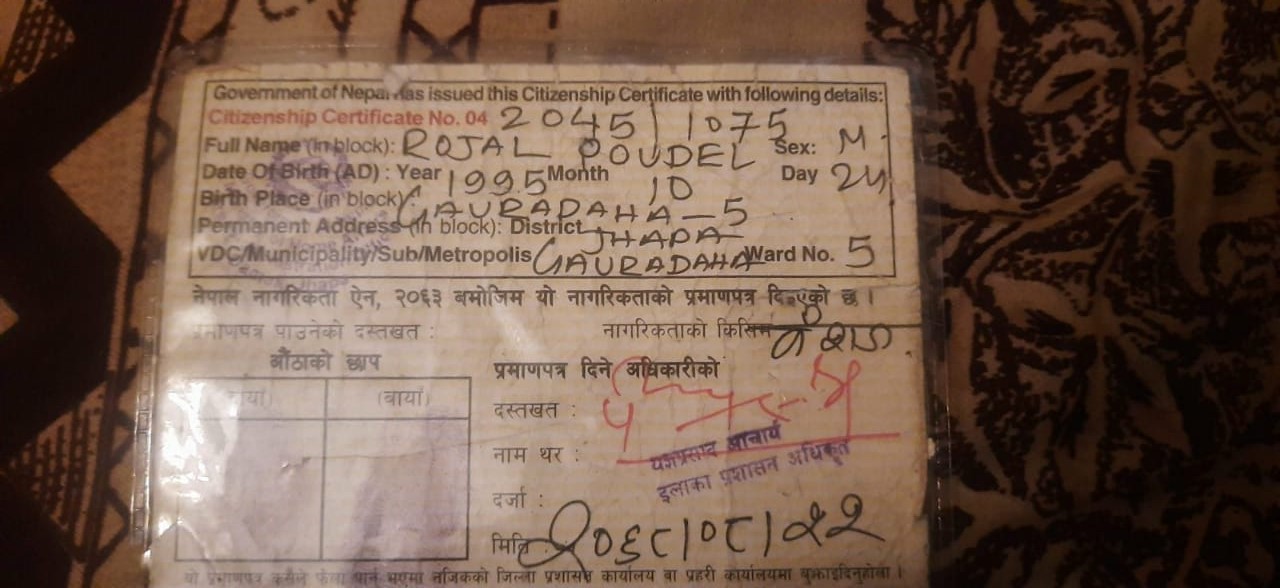 Government of Nepal has issued this Citizenship Certificate with following details:
Citizenship Certificate No. 04 2045/1075
Full Name (in block): ROJAL POUDEL Sex: M.
Date Of Birth (AD) : Year 1995 Month 10 Day 24
Birth Place (in block): GAURADAHA-5
Permanent Address (in block): District JHAPA
VDC/Municipality/Sub/Metropolis GAURADAHA Ward No. 5
नेपाल नागरिकता ऐन, २०६३ बमोजिम यो नागरिकताको प्रमाणपत्र दिइएको छ ।
प्रमाणपत्र पाउनेको दस्तखत : नागरिकताको किसिम वंशज.
औंठाको छाप
(दायाँ) (बायाँ)
प्रमाणपत्र दिने अधिकारीको
दस्तखत :
नाम थर : यज्ञप्रसाद आचार्य
इलाका प्रशासन अधिकृत
दर्जा :
मिति : २०६८।०८।२२
यो प्रमाणपत्र कसैले फेला पारेमा नजिकको जिल्ला प्रशासन कार्यालय वा प्रहरी कार्यालयमा बुझाइदिनुहोला ।